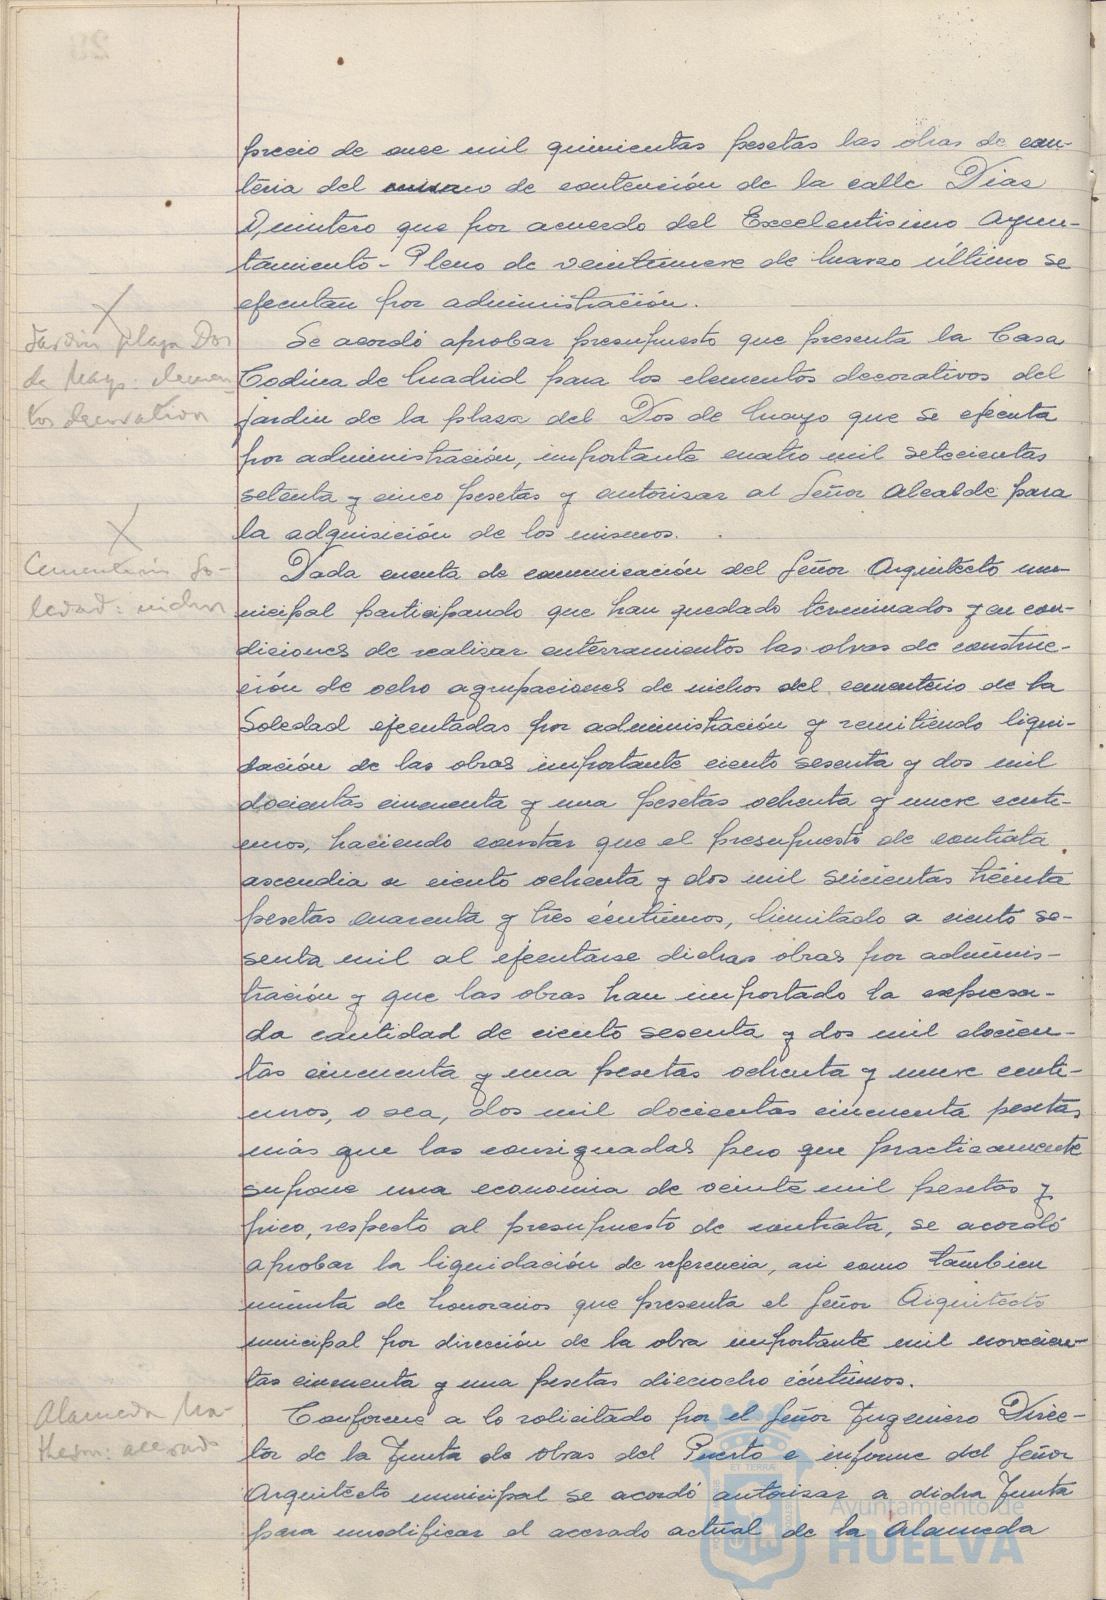 precio de once mil quinientas pesetas las obras de can-
teria del muro de contención de la calle Dias
Quintero que por acuerdo del Excelentisimo Ayun-
tamiento-Pleno de veintinueve de Marzo último se
ejecutan por administración.
Jardin plaza Dos
de Mayo: elemen-
tos decorativos
Se acordó aprobar presupuesto que presenta la Casa
Codina de Madrid para los elementos decorativos del
jardin de la plaza del Dos de Mayo que se ejecuta
por administración, importante cuatro mil setecientas
setenta y cinco pesetas y autorizar al Señor Alcalde para
la adquisición de los mismos.
Cementerio So-
ledad: nichos
Dada cuenta de comunicación del Señor Arquitecto mu-
nicipal participando que han quedado terminados y en con-
diciones de realizar enterramientos las obras de construc-
ción de ocho agrupaciones de nichos del cementerio de la
Soledad ejecutadas por administración y remitiendo liqui-
dación de las obras importante ciento sesenta y dos mil
docientas cincuenta y una pesetas ochenta y nueve centi-
mos, haciendo constar que el presupuesto de contrata
ascendia a ciento ochenta y dos mil seicientas treinta
pesetas cuarenta y tres céntimos, limitado a ciento se-
senta mil al ejecutarse dichas obras por adminis-
tración y que las obras han importado la expresa-
da cantidad de ciento sesenta y dos mil docien-
tas cincuenta y una pesetas ochenta y nueve centi-
mos, o sea, dos mil docientas cincuenta pesetas
más que las consignadas pero que practicamente
supone una economia de veinte mil pesetas y
pico, respecto al presupuesto de contrata, se acordó
aprobar la liquidación de referencia, asi como tambien
minuta de honorarios que presenta el Señor Arquitecto
municipal por dirección de la obra importante mil novecien-
tas cincuenta y una pesetas dieciocho céntimos.
Alameda Ma-
theson: acerado
Conforme a lo solicitado por el Señor Ingeniero Direc-
tor de la Junta de obras del Puerto e informe del Señor
Arquitecto municipal se acordó autorizar a dicha Junta
para modificar el acerado actual de la Alameda
Ayuntamiento de
HUELVA